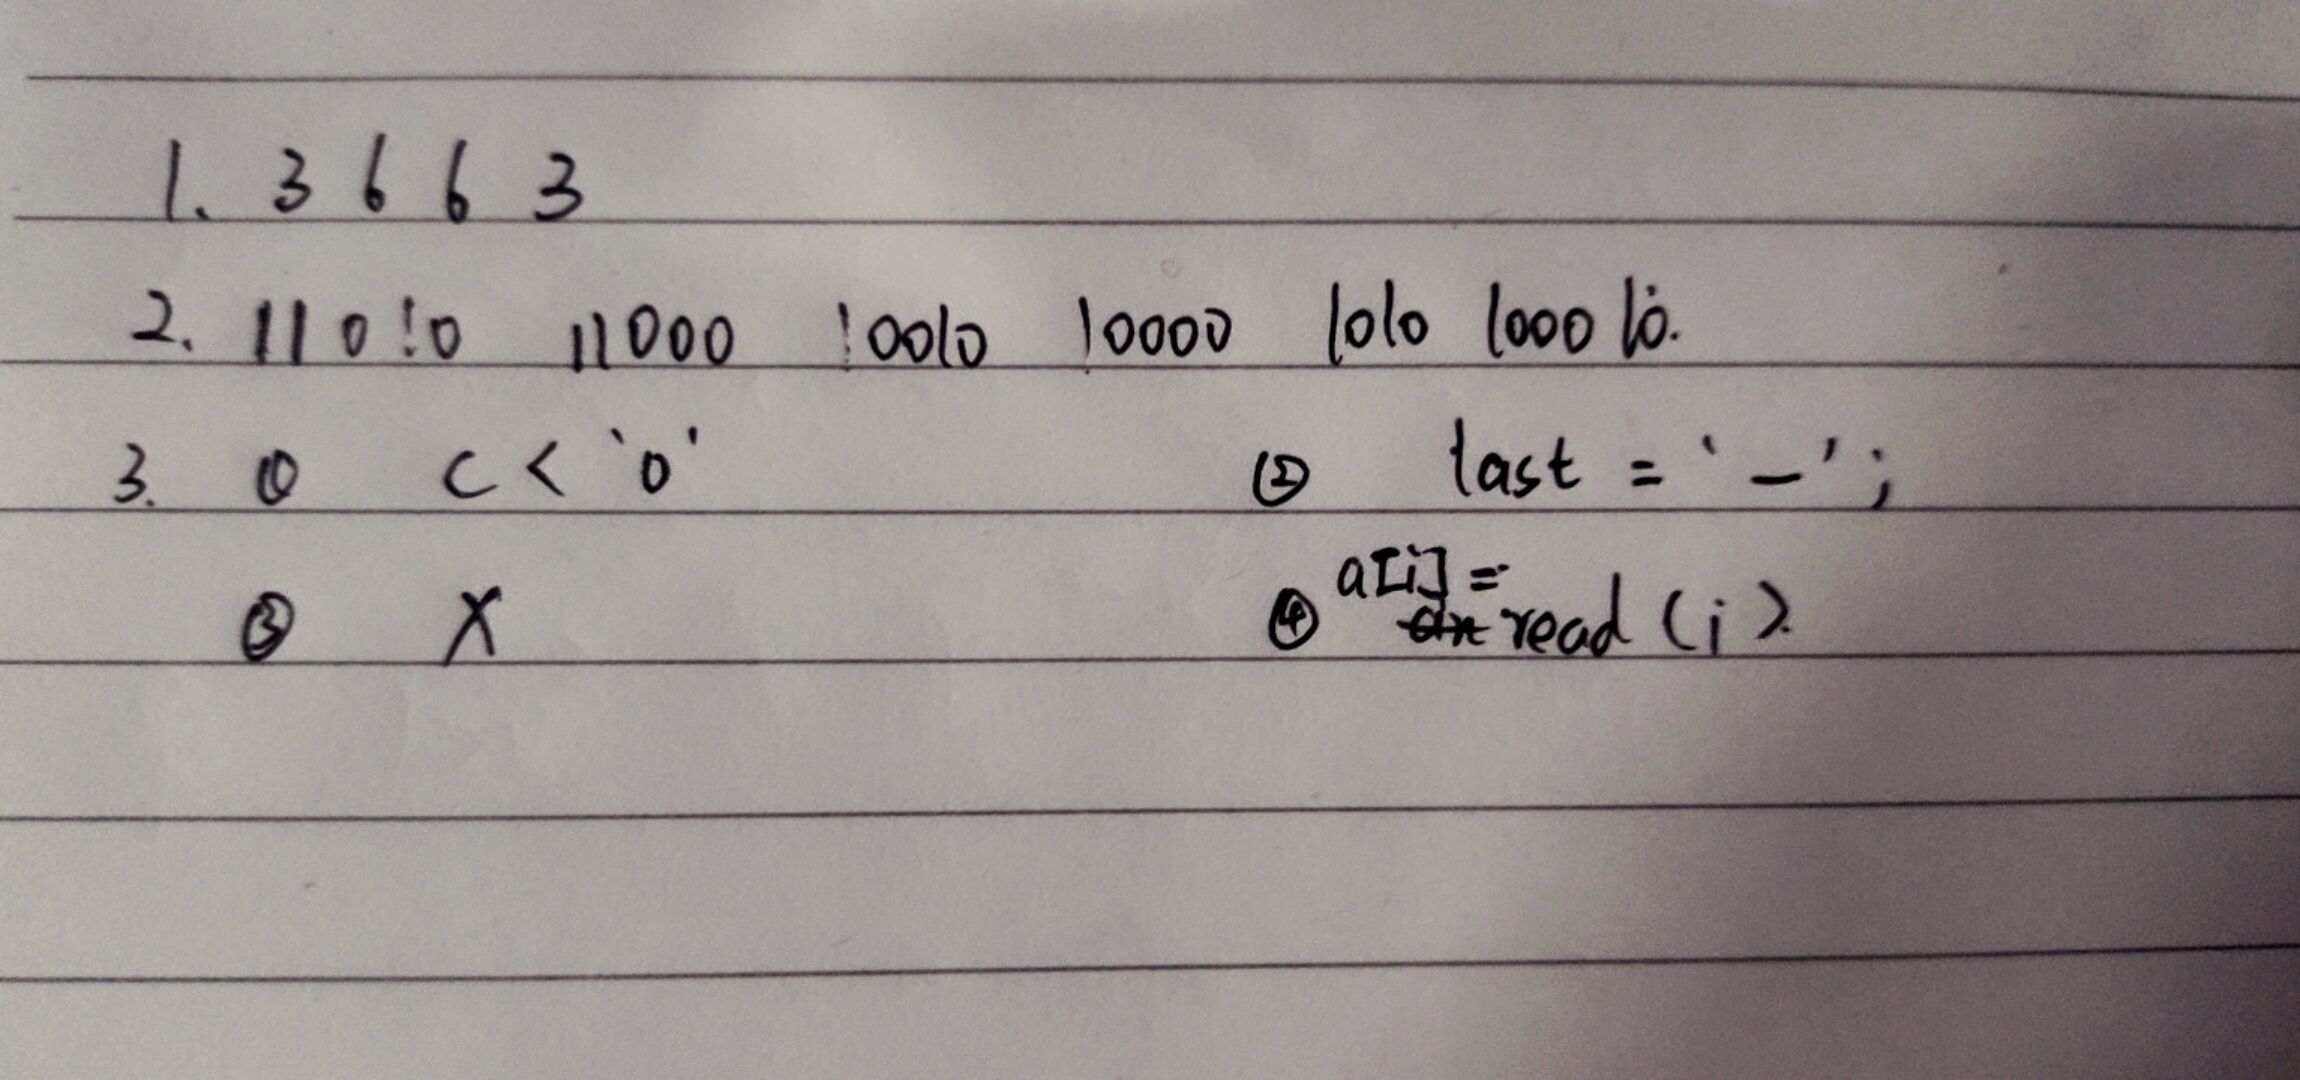 1. 3 6 6 3
2. 11010 11000 10010 10000 1010 1000 10.
3. ① c < '0' ② last = '-';
③ X ④ a[i] = read (i).